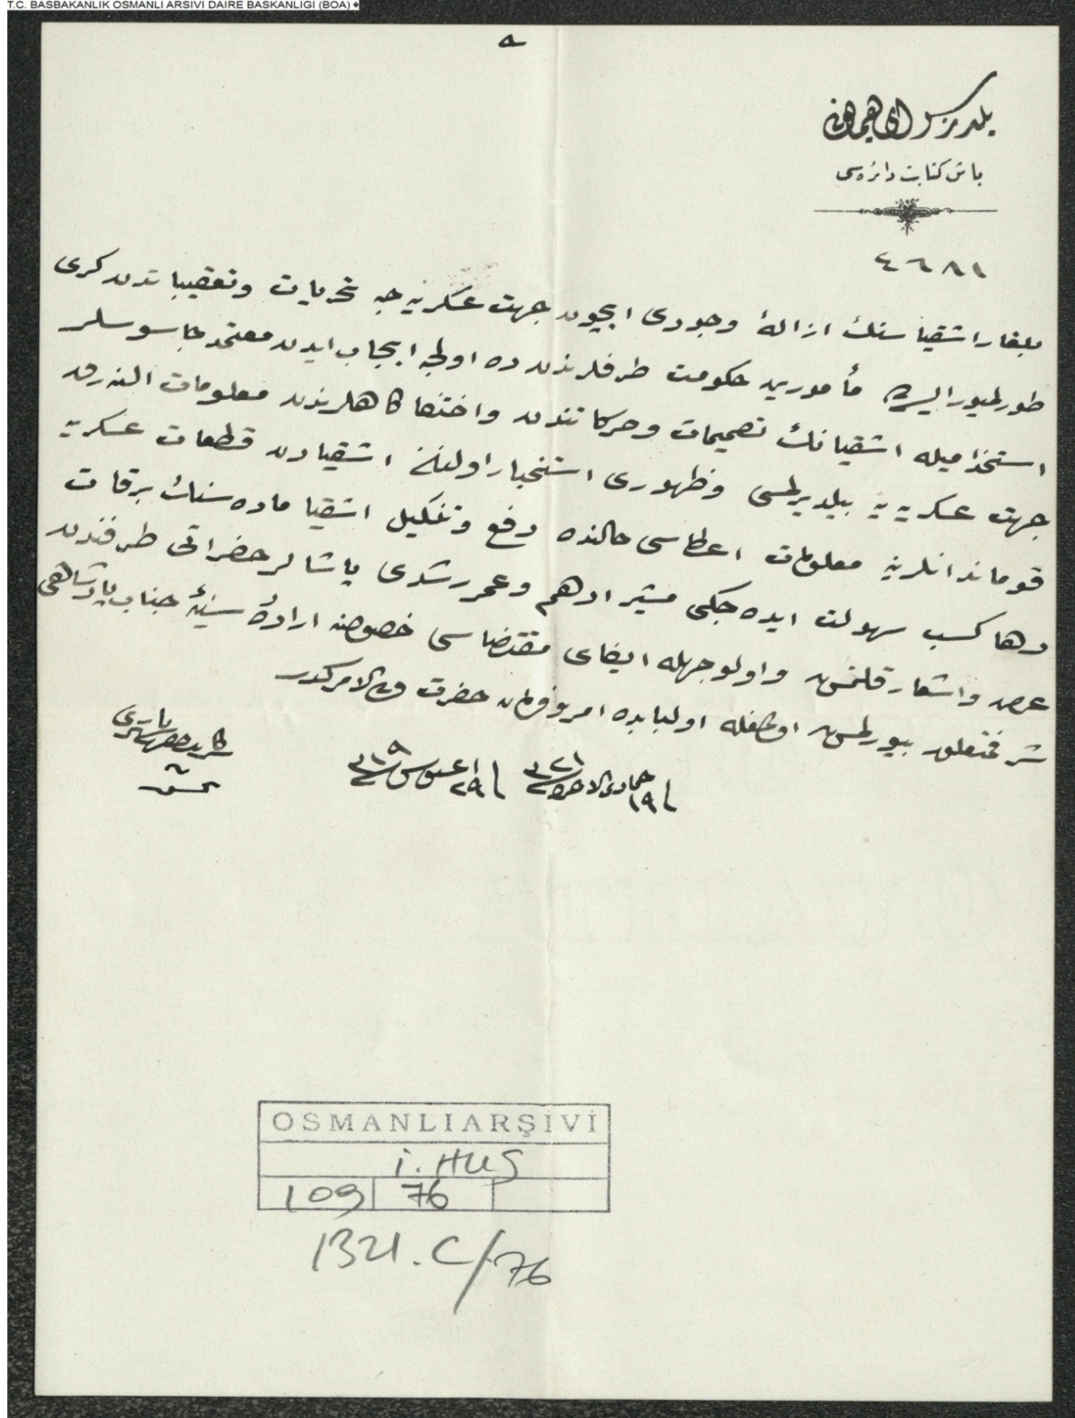 T.C. BASBAKANLIK OSMANLI ARSIVI DAIRE BASKANLIGI (BOA)
یلدیز سرای همایونی
باش کتابت دائره‌سی
٤٦٨١
بلغار اشقیاسنك ازالۀ وجودی ایچون جهت عسکریه‌جه تحریات و تعقیباتدن کری
طورلمیور ایسه‌ده مأمورین حکومت طرفلرندن ده اولجه ایجاب ایدن معتمد جاسوسلر
استخدامیله اشقیانك تصمیمات و حرکاتندن و اختفاکاهلرندن معلومات النه‌رق
جهت عسکریه‌یه بیلدیرلمسی و ظهوری استخبار اولنان اشقیادن قطعات عسکریه
قوماندانلرینه معلومات اعطاسی حالنده دفع و تنکیل اشقیا ماده‌سنك برقات
دها کسب سهولت ایده‌جکی مشیر ادهم و عمر رشدی پاشالر حضراتی طرفندن
عرض و اشعار قلنمش و اولوجهله ایفای مقتضاسی خصوصنه ارادۀ سنیۀ جناب پادشاهی
شرفتعلق بیورلمش اولمغله اولبابده امر و فرمان حضرت ولی الامرکدر
فی ١٩ جمادی الاخره سنه ٣٢١ فی ٢٩ اغستوس سنه ٣١٩
سرکاتب حضرت شهریاری
تحسین
OSMANLI ARŞİVİ
İ. HUS
109 76
1321.C/76